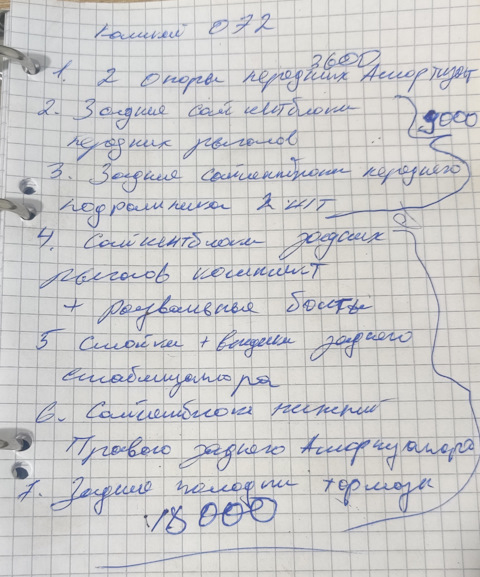 072
3600
1. 2 опоры передних Амортизат
2. Задние сайлентблоки
передних рычагов
9000
3. Задние сайлентблоки переднего
подрамника 2 шт
4. Сайлентблоки задних
рычагов комплект
+ развальные болты
5 Стойки + втулки заднего
стабилизатора
6. Сайлентблок нижний
Правого заднего Амортизатора
7. Задние колодки тормозн
18000